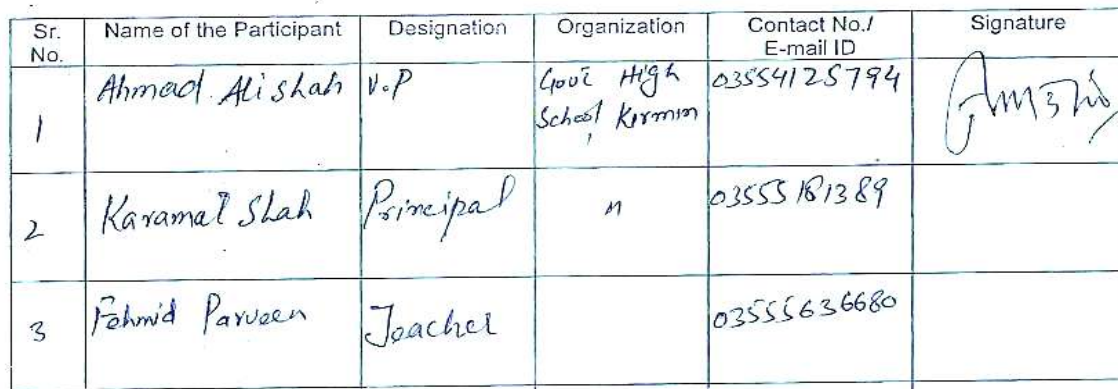 Sr. No. Name of the Participant Designation Organization Contact No./ E-mail ID Signature
1 Ahmad Ali Shah V.P Govt High School Kirmin 03554125794
2 Karamat Shah Principal " 03555181389
3 Fehmid Parveen Teacher 03555636680